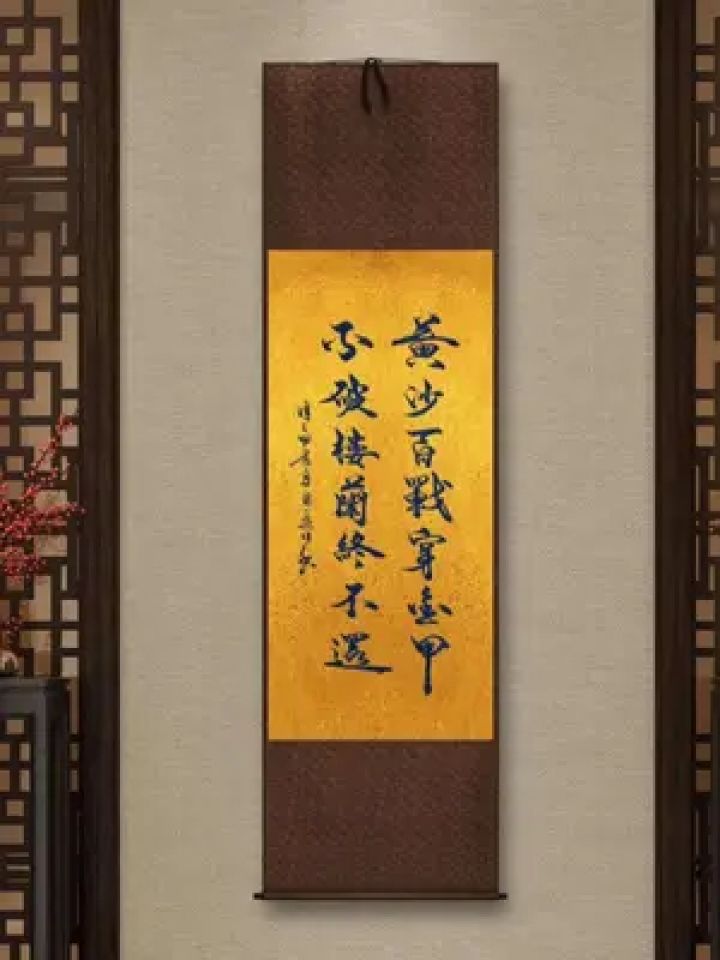 黄沙百戰穿金甲
不破楼蘭終不還